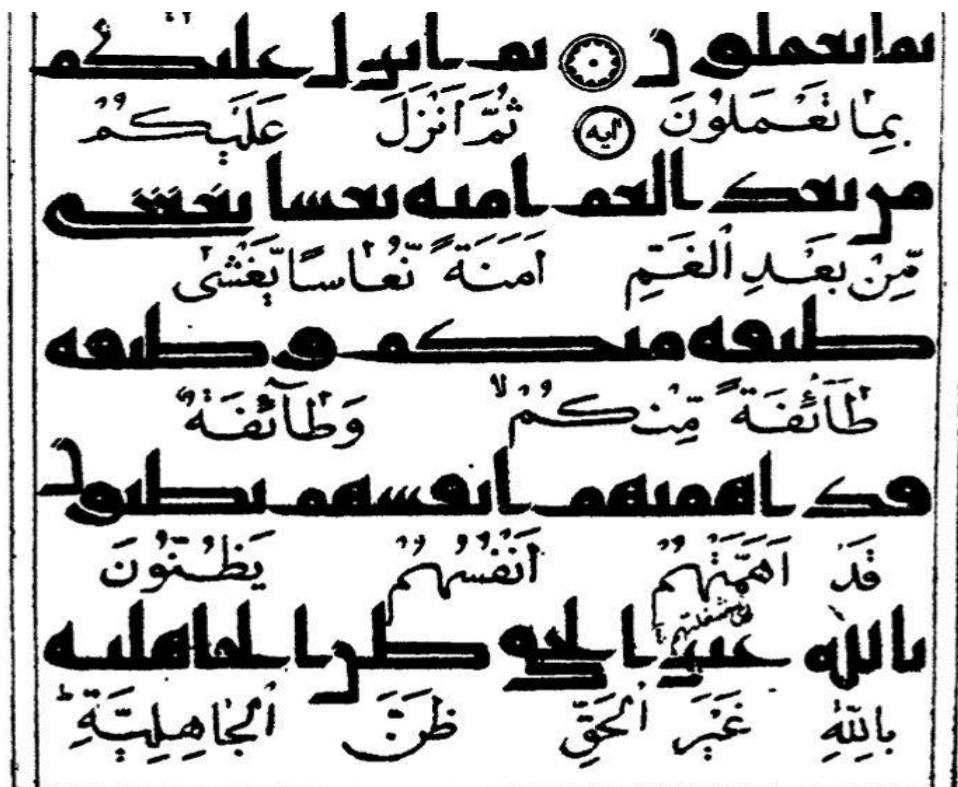 بما تعملون ۝ ثم انزل عليكم
بِمَا تَعْمَلُوْنَ ايه ثُمَّ اَنْزَلَ عَلَيْكُمْ
من بعد الغم امنة نعسا يغشى
مِّنْۢ بَعْدِ الْغَمِّ اَمَنَةً نُّعَاسًا يَّغْشٰى
طيفة منكم و طيفة
طَآئِفَةً مِّنْكُمْ ۙ وَطَآئِفَةٌ
قد اهمتهم انفسهم يظنون
قَدْ اَهَمَّتْهُمْ اَنْفُسُهُمْ يَظُنُّوْنَ
بالله غير الحق ظن الجاهلية
بِاللّٰهِ غَيْرَ الْحَقِّ ظَنَّ الْجَاهِلِيَّةِ ؕ